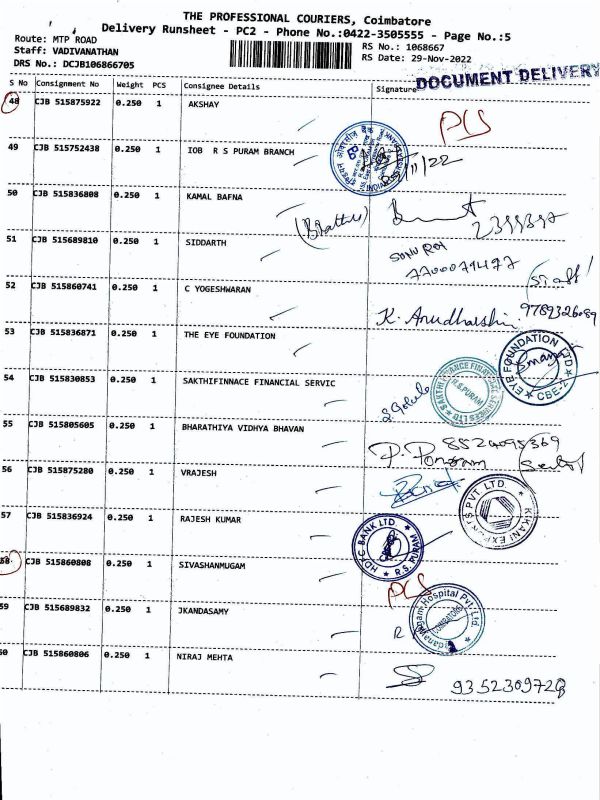 THE PROFESSIONAL COURIERS, Coimbatore
Delivery Runsheet - PC2 - Phone No.:0422-3505555 - Page No.:5
Route: MTP ROAD
Staff: VADIVANATHAN
DRS No.: DCJB106866705
RS No.: 1068667
RS Date: 29-Nov-2022
DOCUMENT DELIVERY
S No Consignment No Weight PCS Consignee Details Signature
48 CJB 515875922 0.250 1 AKSHAY
49 CJB 515752438 0.250 1 IOB R S PURAM BRANCH
/11/22
50 CJB 515836808 0.250 1 KAMAL BAFNA
51 CJB 515689810 0.250 1 SIDDARTH
SONU ROY
52 CJB 515860741 0.250 1 C YOGESHWARAN
K. Anudharshini
9789326089
53 CJB 515836871 0.250 1 THE EYE FOUNDATION
EYE FOUNDATION LTD
CBE-2
54 CJB 515830853 0.250 1 SAKTHIFINNACE FINANCIAL SERVIC
R.S.PURAM
55 CJB 515805605 0.250 1 BHARATHIYA VIDHYA BHAVAN
8524095369
56 CJB 515875280 0.250 1 VRAJESH
57 CJB 515836924 0.250 1 RAJESH KUMAR
HDFC BANK LTD.
R.S. PURAM
58 CJB 515860808 0.250 1 SIVASHANMUGAM
59 CJB 515689832 0.250 1 JKANDASAMY
Hospital Pvt. Ltd.
COIMBATORE
60 CJB 515860806 0.250 1 NIRAJ MEHTA
9352309728